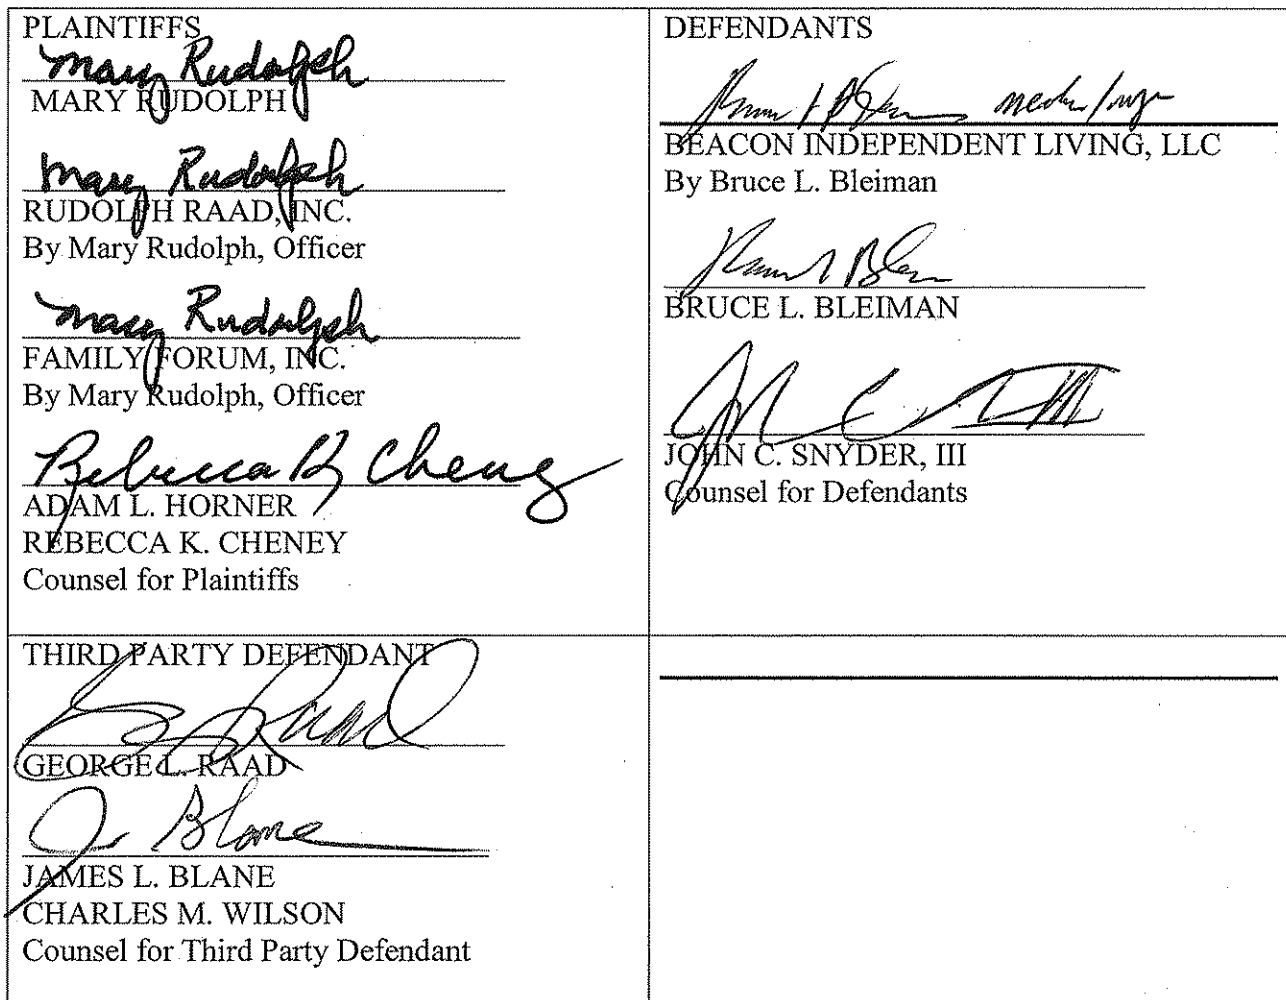 PLAINTIFFS
Mary Rudolph
MARY RUDOLPH
Mary Rudolph
RUDOLPH RAAD, INC.
By Mary Rudolph, Officer
Mary Rudolph
FAMILY FORUM, INC.
By Mary Rudolph, Officer
Rebecca K Cheney
ADAM L. HORNER
REBECCA K. CHENEY
Counsel for Plaintiffs
DEFENDANTS
BEACON INDEPENDENT LIVING, LLC
By Bruce L. Bleiman
BRUCE L. BLEIMAN
JOHN C. SNYDER, III
Counsel for Defendants
THIRD PARTY DEFENDANT
Raad
GEORGE L. RAAD
Blane
JAMES L. BLANE
CHARLES M. WILSON
Counsel for Third Party Defendant